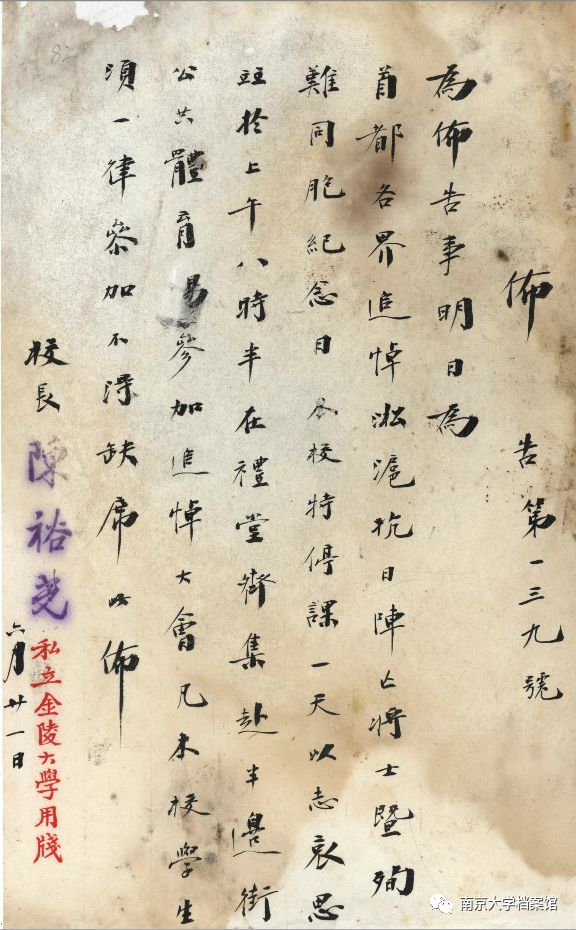 佈告第一三九號
為佈告事明日為
首都各界追悼淞滬抗日陣亡將士暨殉
難同胞紀念日本校特停課一天以志哀思
並於上午八時半在禮堂齊集赴半邊街
公共體育場參加追悼大會凡本校學生
須一律參加不得缺席此佈
校長陳裕光
六月廿一日
私立金陵大學用牋
南京大学档案馆
82